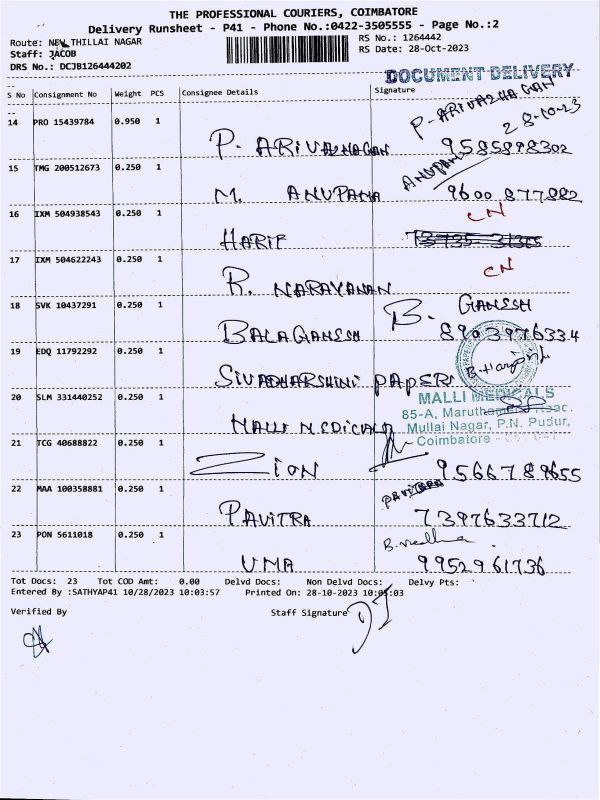 THE PROFESSIONAL COURIERS, COIMBATORE
Delivery Runsheet - P41 - Phone No.:0422-3505555 - Page No.:2
Route: NEW THILLAI NAGAR
RS No.: 1264442
Staff: JACOB
RS Date: 28-Oct-2023
DRS No.: DCJB126444202
DOCUMENT DELIVERY
S No Consignment No Weight PCS Consignee Details Signature
14 PRO 15439784 0.950 1
P. ARIVAZHAGAN
28-10-23
P. ARIVAZHAGAN 9585898302
15 TMG 200512673 0.250 1
ANUPAMA
M. ANUPAMA 9600 877882
16 IXM 504938543 0.250 1
CN
HARIF
17 IXM 504622243 0.250 1
CN
R. NARAYANAN
18 SVK 10437291 0.250 1
B. GANSSH
BALAGANSSH 8903976334
19 EDQ 11792292 0.250 1
SIVADHARSHINI PAPERS
20 SLM 331440252 0.250 1
MALLI MEDICALS
85-A, Maruthamalai Road,
Mullai Nagar, P.N. Pudur,
Coimbatore
MALLI MEDICALS
21 TCG 40688822 0.250 1
ZION 9566789655
22 MAA 100358881 0.250 1
PAVITRA
PAVITRA 7397633712
23 PON 5611018 0.250 1
UMA 9952961736
Tot Docs: 23 Tot COD Amt: 0.00 Delvd Docs: Non Delvd Docs: Delvy Pts:
Entered By :SATHYAP41 10/28/2023 10:03:57 Printed On: 28-10-2023 10:05:03
Verified By Staff Signature